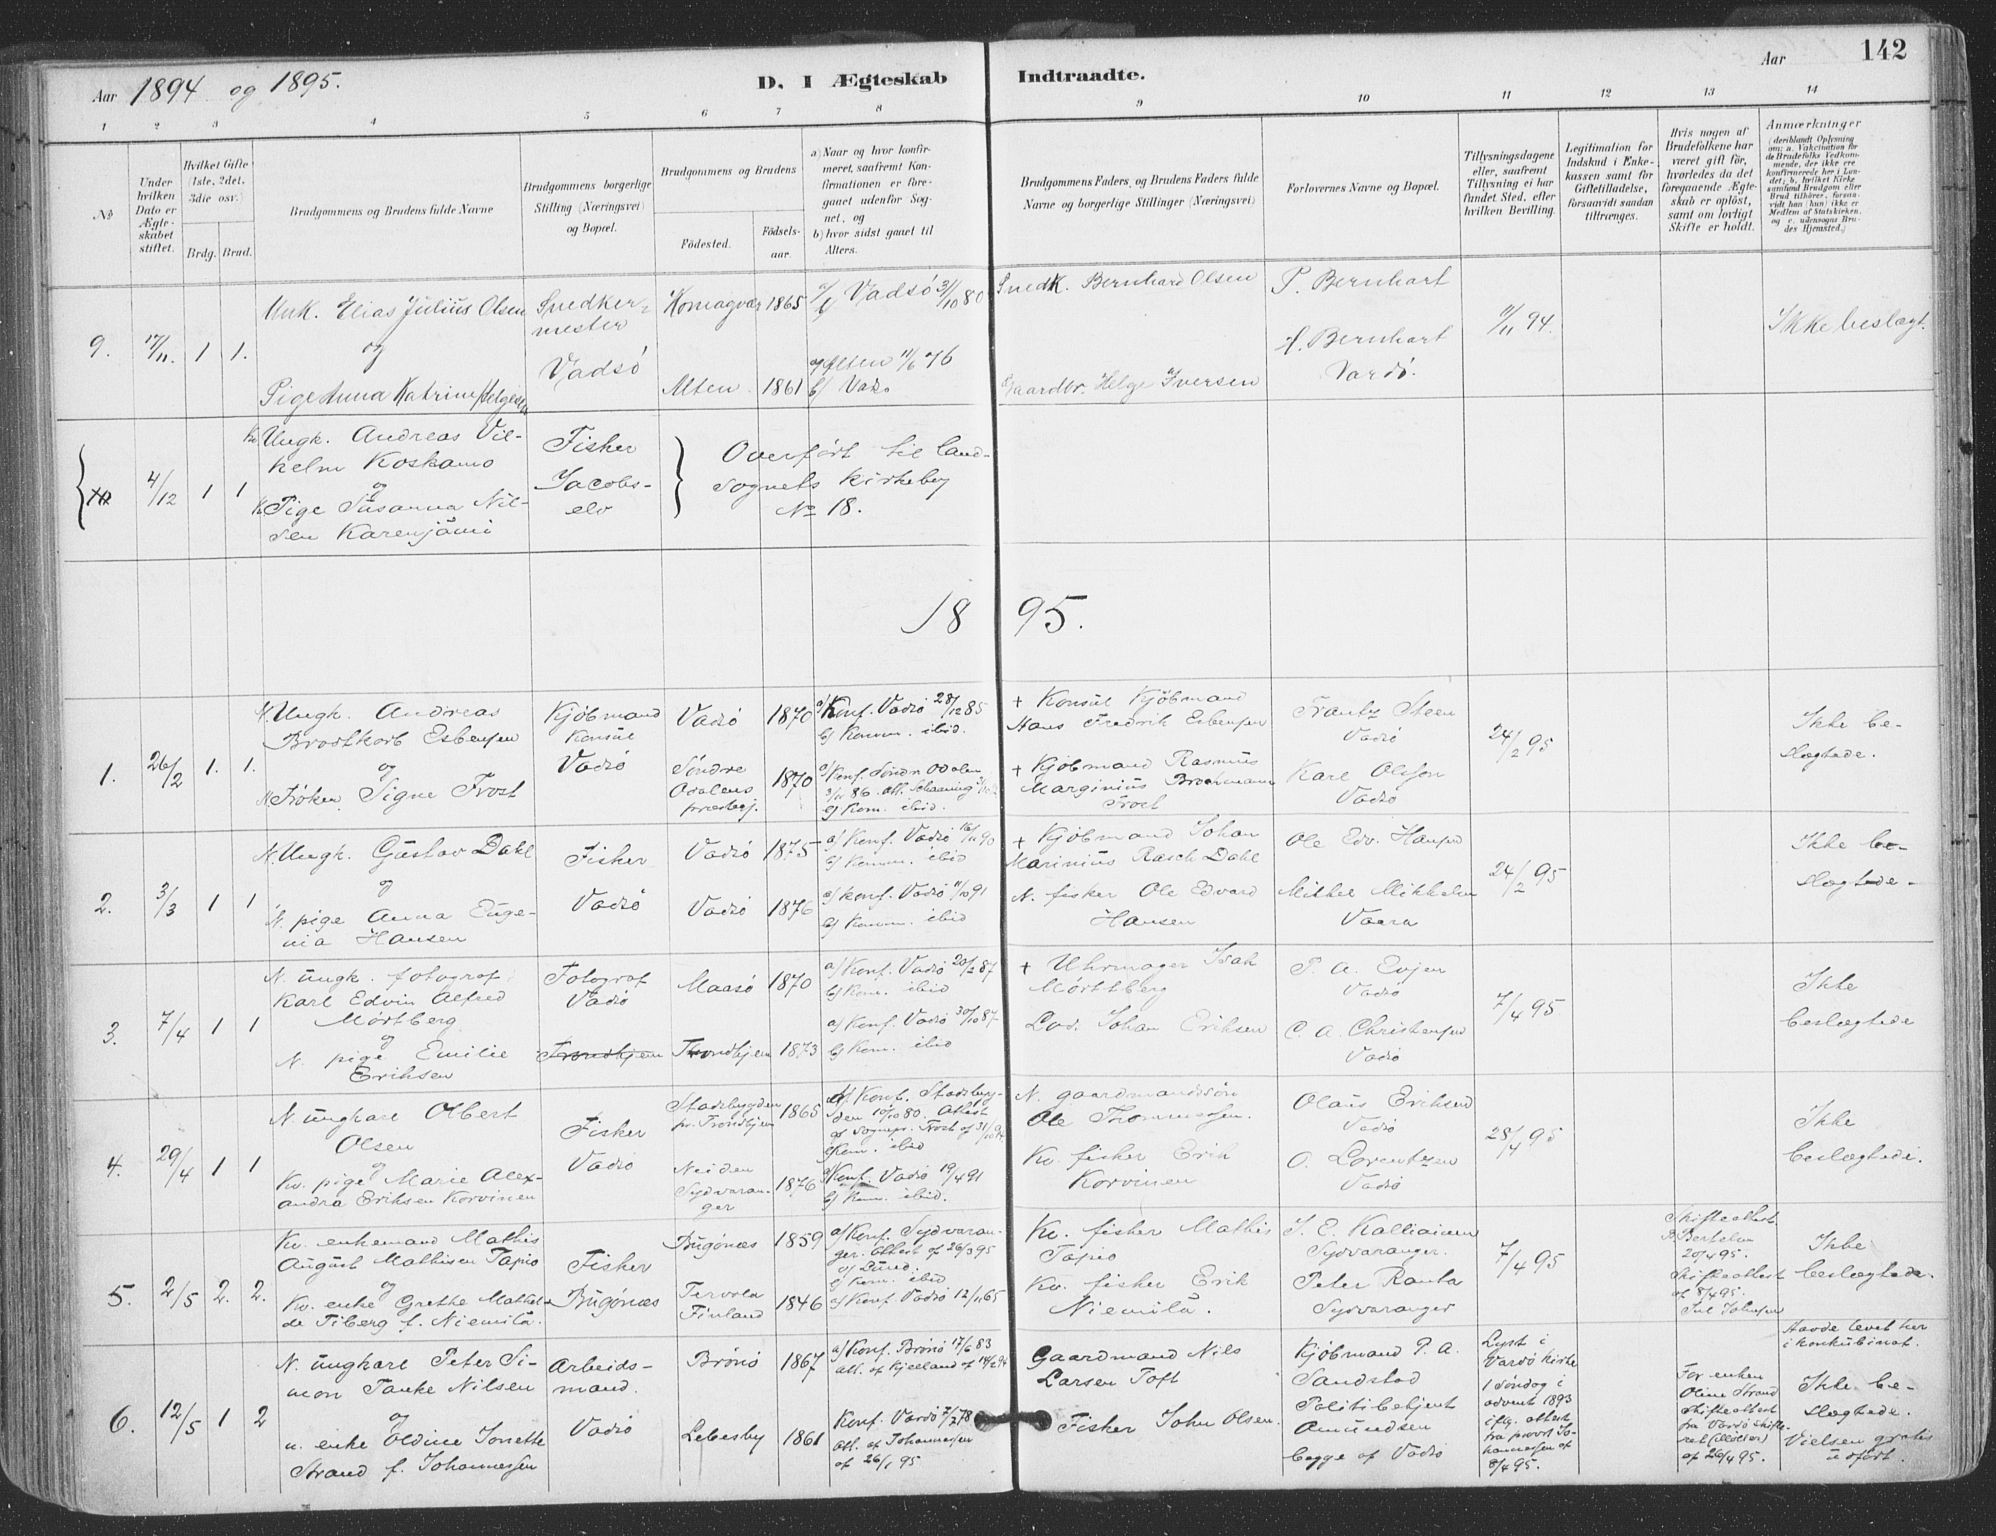 142
Aar 1894 og 1895.
D. I Ægteskab Indtraadte.
Aar
1 2 3 4 5 6 7 8 9 10 11 12 13 14
No
Under hvilken Dato er Ægteskabet stiftet.
Hvilket Gifte (1ste, 2det, 3die osv.)
Brdg. Brud.
Brudgommens og Brudens fulde Navne
Brudgommens borgerlige Stilling (Næringsvei) og Bopæl.
Brudgommens og Brudens
Fødested.
Fødselsaar.
a) Naar og hvor konfirmeret, saafremt Konfirmationen er foregaaet udenfor Sognet, og
b) hvor sidst gaaet til Alters.
Brudgommens Faders og Brudens Faders fulde Navne og borgerlige Stillinger (Næringsvei)
Forlovernes Navne og Bopæl.
Tillysningsdagene eller, saafremt Tillysning ei har fundet Sted, efter hvilken Bevilling.
Legitimation for Indskud i Enkekassen samt for Giftetilladelse, forsaavidt saadan tiltrænges.
Hvis nogen af Brudefolkene har været gift før, hvorledes da det foregaaende Ægteskab er opløst, samt om lovligt Skifte er holdt.
Anmærkninger
9. 17/11. 1 1.
Unk. Elias Julius Olsen
og
Pige Anna Katrine Helgesen
Snedkermester
Vadsö
Komagvær 1865
Alten 1861
Vadsö 31/10 80
Alten 11/6 76
b/ Vadsö
Snedk. Bernhard Olsen
Gaardbr. Helge Iversen
P. Bernhart
A. Bernhart
Vardö.
11/11 94.
Ikke beslægt.
10 4/12 1 1
Kv. Ungk. Andreas Vilhelm Koskamo
og
Kv. Pige Susanna Nilsen Karenjämi
Fisker
Jacobselv
Overført til landsognets kirkebog
No 18.
1895.
1. 26/2 1. 1.
N. Ungk. Andreas
Brodtkorb Esbensen
og
N. Frøken Signe Frost
Kjøbmand
Konsul
Vadsö
Vadsö 1870
Søndre
Odalens
præstegj. 1870
a/ Konf. Vadsö 28/12 85
b/ Komm. ibid.
a/ Konf. Søndr Odalen
b/ Kom. ibid.
+ Konsul Kjøbmand
Hans Fredrik Esbensen
+ Kjøbmand Rasmus
Marginius Brochmann
Frost
Frantz Steen
Vadsö
Karl Olsson
Vadsö
24/2 95
Ikke beslægtede.
2. 3/3 1 1
N. Ungk. Gustav Dahl
og
N. pige Anna Eugenia Hansen
Fisker
Vadsö
Vadsö 1875
Vadsö 1876
a/ Konf. Vadsö 16/11 90
b/ Komm. ibid
a/ Konf. Vadsö 11/10 91
b/ Komm. ibid
+ Kjøbmand Johan
Marinius Rasch Dahl
N. fisker Ole Edvard
Hansen
Ole Edv. Hansen
Mikkel Mikkelsen
Vadsö
24/2 95
Ikke beslægtede.
3. 7/4 1 1
N. ungk. fotograf
Karl Edvin Alfred
Mørtberg
og
N. pige Emilie
Eriksen
Fotograf
Vadsö
Trondhjem
Maasö 1870
Trondhjem 1873
a/ Konf. Vadsö 20/2 87
b/ Kom. ibid
a/ Konf. Vadsö 30/10 87
b/ Kom. ibid
+ Uhrmager Isak
Mörttberg
Lods. Johan Eriksen
P. A. Evjen
Vadsö
C. A. Christensen
Vadsö
7/4 95
Ikke
beslægtede
4. 29/4 1 1
N. ungkarl Olbert
Olsen
og
Kv. pige Marie Alexandra Eriksen Korvinen
Fisker
Vadsö
Stadsbygden
pr. Trondhjem 1865
Neiden
Sydvaranger 1876
a/ Konf. Stadsbygden 10/10 80. Attest
af Sognepr. Frost af 31/10 94
Kom. ibid
a/ Konf. Vadsö 19/4 91
b/ Kom. ibid.
N. gaardmandssön
Ole Thommessen.
Kv. fisker Erik
Korvinen
Olaus Eriksen
Vadsö
O. Lorentzen
Vadsö
28/4 95
Ikke
beslægtede.
5. 2/5 2. 2.
Kv. enkemand Mathis
August Mathisen Tapio
og
Kv. enke Grethe Mathilde Tiberg f. Niemilä.
Fisker
Bugönæs
Bugönæs 1859
Tervola
Finland 1846
a/ Konf. Sydvaranger. Attest af 26/3 95
af Lund.
b/ Kom. ibid
a/ Konf. Vadsö 12/11 65
Kv. fisker Mathis
Tapio
Kv. fisker Erik
Niemilä.
J. E. Kalliainen
Sydvaranger.
Peter Ranta
Sydvaranger
7/4 95
Skifteattest
B. Bertelsen
20/4 95.
Skifteattest
af 8/4 95.
Jul Johnsen
Ikke
beslægtede.
6. 12/5 1 2
N. ungkarl Peter Simon Tanke Nilsen
og
n. enke Oldine Jonette
Strand f. Johannessen
Arbeidsmand.
Vadsö
Brönö 1867
Lebesby 1861
a/ Konf. Brönö 17/6 83
att. af Kjelland af 14/2 94
Konf. Vardö 7/7 78
Att. af Johannessen
af 26/1 95
Gaardmand Nils
Larsen Toft
Fisker John Olsen.
Kjøbmand P. A.
Sandstad
Politibetjent
Amundsen
begge af Vadsö
Lyst i
Vardö kirke
1 söndag i
advent 1893
iflg. attest
fra provst Johannessen af
8/4 95.
For enken
Oline Strand
skifteattest
fra Vardö skifteret
af 26/4 95.
Havde levet her
i konkubinat.
Ikke beslægtede.
Vielsen gratis
udført.